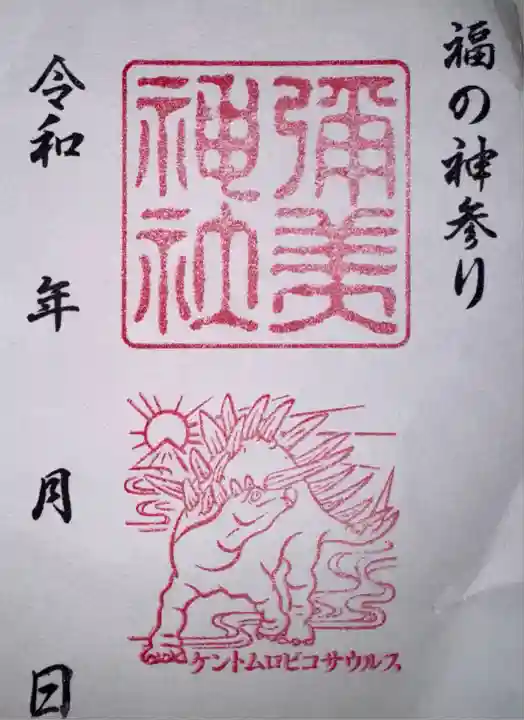 福の神参り
彌美
神社
令和 年 月 日
ケントムロビコサウルス